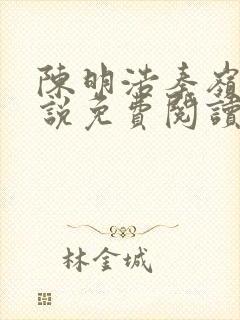 陳明浩秦嶺
說免費閱讀
林金城